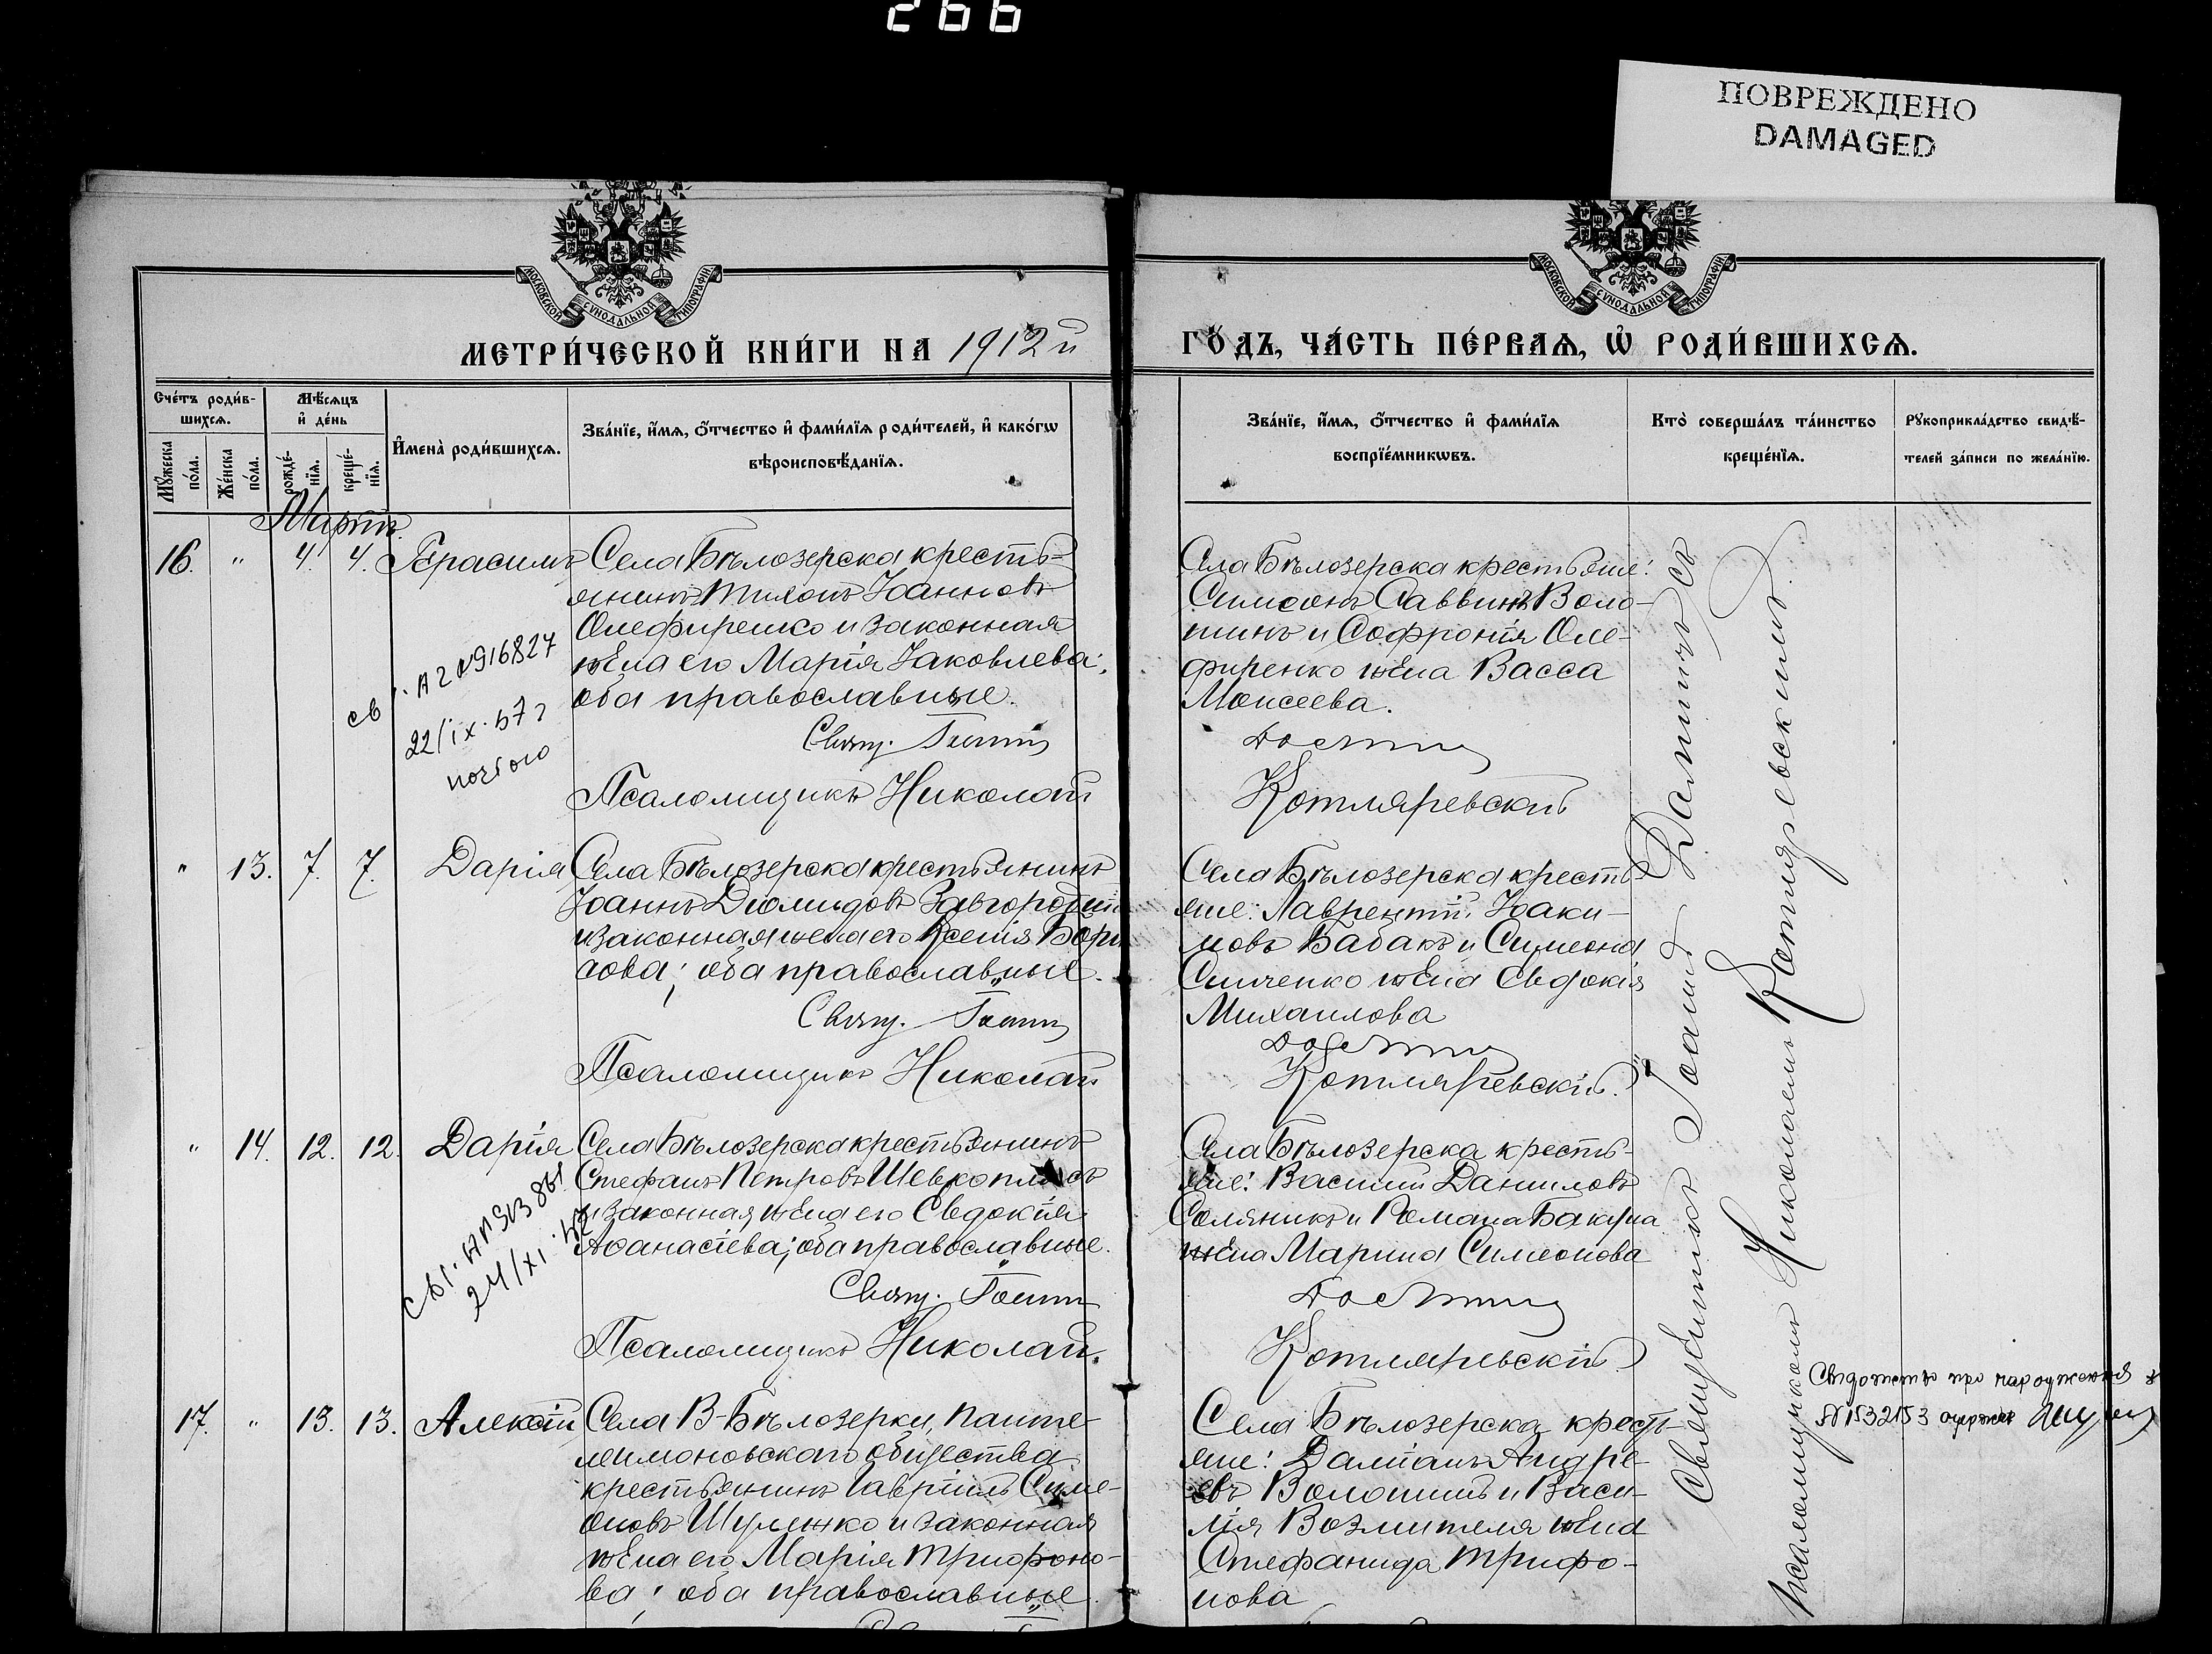 266
ПОВРЕЖДЕНО
DAMAGED
МОСКОВСКОЙ СѴНОДАЛЬНОЙ ТИПОГРАФІИ
МОСКОВСКОЙ СѴНОДАЛЬНОЙ ТИПОГРАФІИ
МЕТРИ́ЧЕСКОЙ КНИ́ГИ НА 1912й
ГО́ДЪ, ЧА́СТЬ ПЕ́РВАѦ, Ѿ РОДИ́ВШИХСѦ.
Сче́тъ роди́в-
шихсѧ.
Мꙋ́жеска по́ла.
Же́нска по́ла.
Мѣ́сѧцъ
и҆ де́нь
рожде́-
нїѧ.
креще́-
нїѧ.
И҆мена̀ роди́вшихсѧ.
Зва́нїе, и҆́мѧ, ѻ҆́тчество и҆ фами́лїѧ роди́телей, и҆ како́гѡ
вѣроисповѣ́данїѧ.
Зва́нїе, и҆́мѧ, ѻ҆́тчество и҆ фами́лїѧ
воспрїе́мникѡвъ.
Кто̀ соверша́лъ та́инство
креще́нїѧ.
Рꙋкоприкла́дство свидѣ́-
телей за́писи по жела́нїю.
Мартъ.
16. " 4. 4. Герасимъ
Села Бѣлозерска кресть-
янинъ Тихонъ Іоанновъ
Олефиренко и законная
жена его Марія Іаковлева;
оба православные.
Свящ. Іоаннъ
Псаломщикъ Николай
Села Бѣлозерска крестьяне:
Симеонъ Саввинъ Воло-
шинъ и Софронія Оле-
фиренко жена Васса
Моисеева.
Котляревскій
22/IX.57г
" 13. 7. 7. Дарія
Села Бѣлозерска крестьянинъ
Іоаннъ Діомидовъ Завгородній
и законная жена его Ксенія Бори
сова; оба православные.
Свящ. Іоаннъ
Псаломщикъ Николай
Села Бѣлозерска кресть-
яне: Лаврентій Іоаки-
мовъ Бабакъ и Симеона
Синченко жена Евдокія
Михаилова
Котляревскій.
" 14. 12. 12. Дарія
Села Бѣлозерска крестьянинъ
Стефанъ Петровъ Шевкоплясъ
и законная жена его Евдокія
Аѳанасіева; оба православные.
Свящ. Іоаннъ
Псаломщикъ Николай.
Села Бѣлозерска кресть-
яне: Василій Даниловъ
Соляникъ и Романа Бакуна
жена Марина Симеонова
Котляревскій
17. " 13. 13. Алексій
Села В-Бѣлозерки, Панте-
леимоновскаго общества
крестьянинъ Гавріилъ Симе-
оновъ Шуленко и законная
жена его Марія Трифоно-
ва; оба православные.
Села Бѣлозерска кресть-
яне: Даміанъ Андре-
евъ Волошинъ и Васи-
лія Возмителя жена
Стефанида Трифо-
нова
Священникъ Іоаннъ
съ
Псаломщикомъ Николаемъ Котляревскимъ.